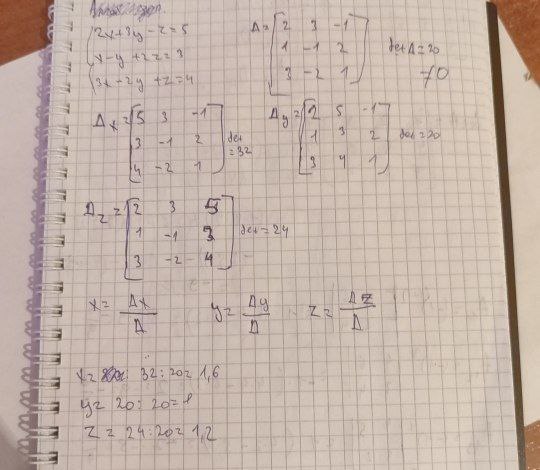 2x+3y-z=5
x-y+2z=3
3x-2y+z=4
Δ= [2 3 -1
1 -1 2
3 -2 1]
det Δ=20
≠0
Δx= [5 3 -1
3 -1 2
4 -2 1]
det
=32
Δy= [2 5 -1
1 3 2
3 4 1]
det=20
Δz= [2 3 5
1 -1 3
3 -2 4]
det=24
x= Δx/Δ y= Δy/Δ z= Δz/Δ
x= 32:20= 1,6
y= 20:20=1
z= 24:20= 1,2